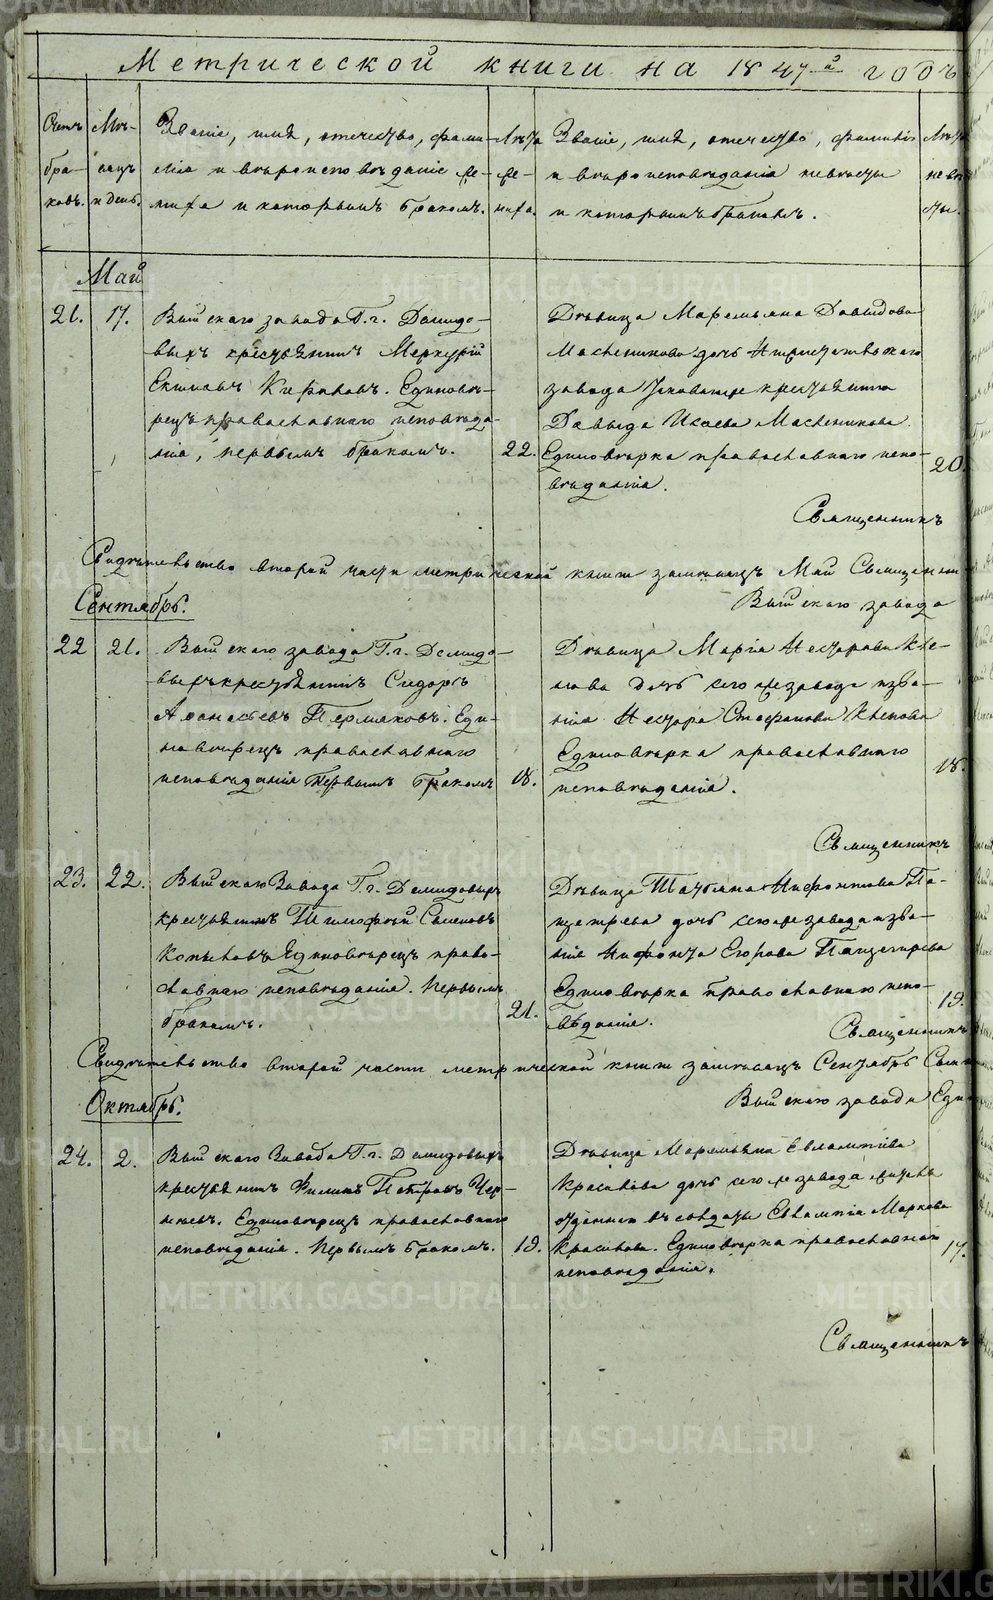 Метрической книги на 1847й годъ
Счетъ браковъ.
Мѣсяцъ и день.
Званіе, имя, отечество, фамилія и вѣроисповѣданіе жениха и которымъ бракомъ.
Лѣта жениха.
Званіе, имя, отечество, фамилія и вѣроисповѣданія невѣсты и которымъ бракомъ.
Лѣта невѣсты.
Май
21. 17.
Выйскаго завода Г.г. Демидо-
выхъ крестьянинъ Меркурій
Екимовъ Единовѣ-
рецъ православнаго исповѣда-
нія, первымъ бракомъ. 22.
Дѣвица Маремьяна Давыдова
Масленикова дочь
завода крестьянина
Давыда Исаева Масленикова.
Единовѣрка православнаго испо- 20.
вѣданія.
Священникъ
Свидѣтельство второй части метрической книги за мѣсяцъ Май Священни
Выйскаго завода
Сентябрь.
22 21.
Выйскаго завода Г.г. Демидо-
выхъ крестьянинъ Сидоръ
Афанасьевъ Пермяковъ. Еди-
новѣрецъ православнаго
исповѣданія Первымъ бракомъ 18.
Дѣвица Марія Несторова Кле-
пова дочь сего же завода
Нестора Стефанова Клепова
Единовѣрка православнаго
исповѣданія. 18.
Священникъ
23. 22.
Выйскаго Завода Г.г. Демидовыхъ
крестьянинъ Тимофей Семеновъ
Копыловъ Единовѣрецъ право-
славнаго исповѣданія. Первымъ
бракомъ. 21.
Дѣвица Татьяна Нифонтова
дочь сего же завода
Нифонта Егорова
Единовѣрка православнаго испо-
вѣданія. 19.
Священникъ
Свидѣтельство второй части метрической книги за мѣсяцъ Сентябрь
Выйскаго завода
Октябрь.
24. 2.
Выйскаго Завода Г.г. Демидовыхъ
крестьянинъ Филипъ Петровъ Чер-
Единовѣрецъ православнаго
исповѣданія. Первымъ бракомъ. 19.
Дѣвица Маремьяна Евлампіева
Красикова дочь сего же завода
отданнаго въ солдаты Евлампія Маркова
Красикова. Единовѣрка православнаго 17.
исповѣданія.
Священникъ
METRIKI.GASO-URAL.RU